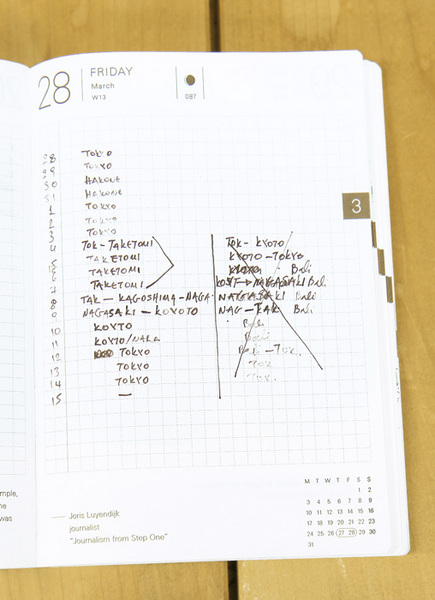 28 FRIDAY
March
W13
087
28 TOKYO
29 TOKYO
30 HAKONE
31 HAKONE
1 TOKYO
2 TOKYO
3 TOKYO
4 TOK - TAKETOMI TOK - KYOTO
5 TAKETOMI KYOTO - TOKYO
6 TAKETOMI Bali
7 TAKETOMI NAGASAKI Bali
8 TAK - KAGOSHIMA - NAGA NAGASAKI Bali
9 NAGASAKI - KOYOTO NAG - TAK Bali
10 KOYTO Bali
11 KOYTO/NARA Bali
12 TOKYO Bali - TOK
13 TOKYO TOK
14 TOKYO TOK
15 —
3
mple,
he
was
— Joris Luyendijk
journalist
"Journalism from Step One"
M T W T F S S
1 2
3 4 5 6 7 8 9
10 11 12 13 14 15 16
17 18 19 20 21 22 23
24 25 26 27 28 29 30
31